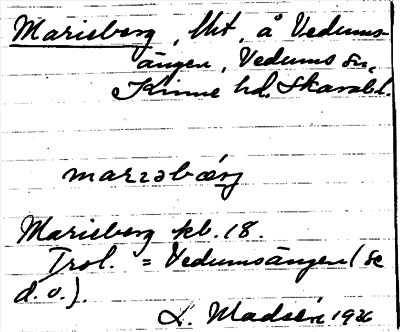 Marieberg, lht, å Vedums-
ängen, Vedums sn,
Kinne hd. Skarab. l.
marɪəbærj
Marieberg kb. 18.
Trol. = Vedumsängen (se
d. o.).
L. 1926